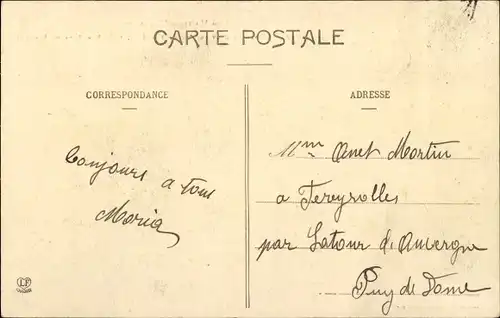 CARTE POSTALE
CORRESPONDANCE
ADRESSE
Bonjours a tous
Maria
Mme Anet Martin
a Fereyrolles
par Latour d'Auvergne
Puy de Dome